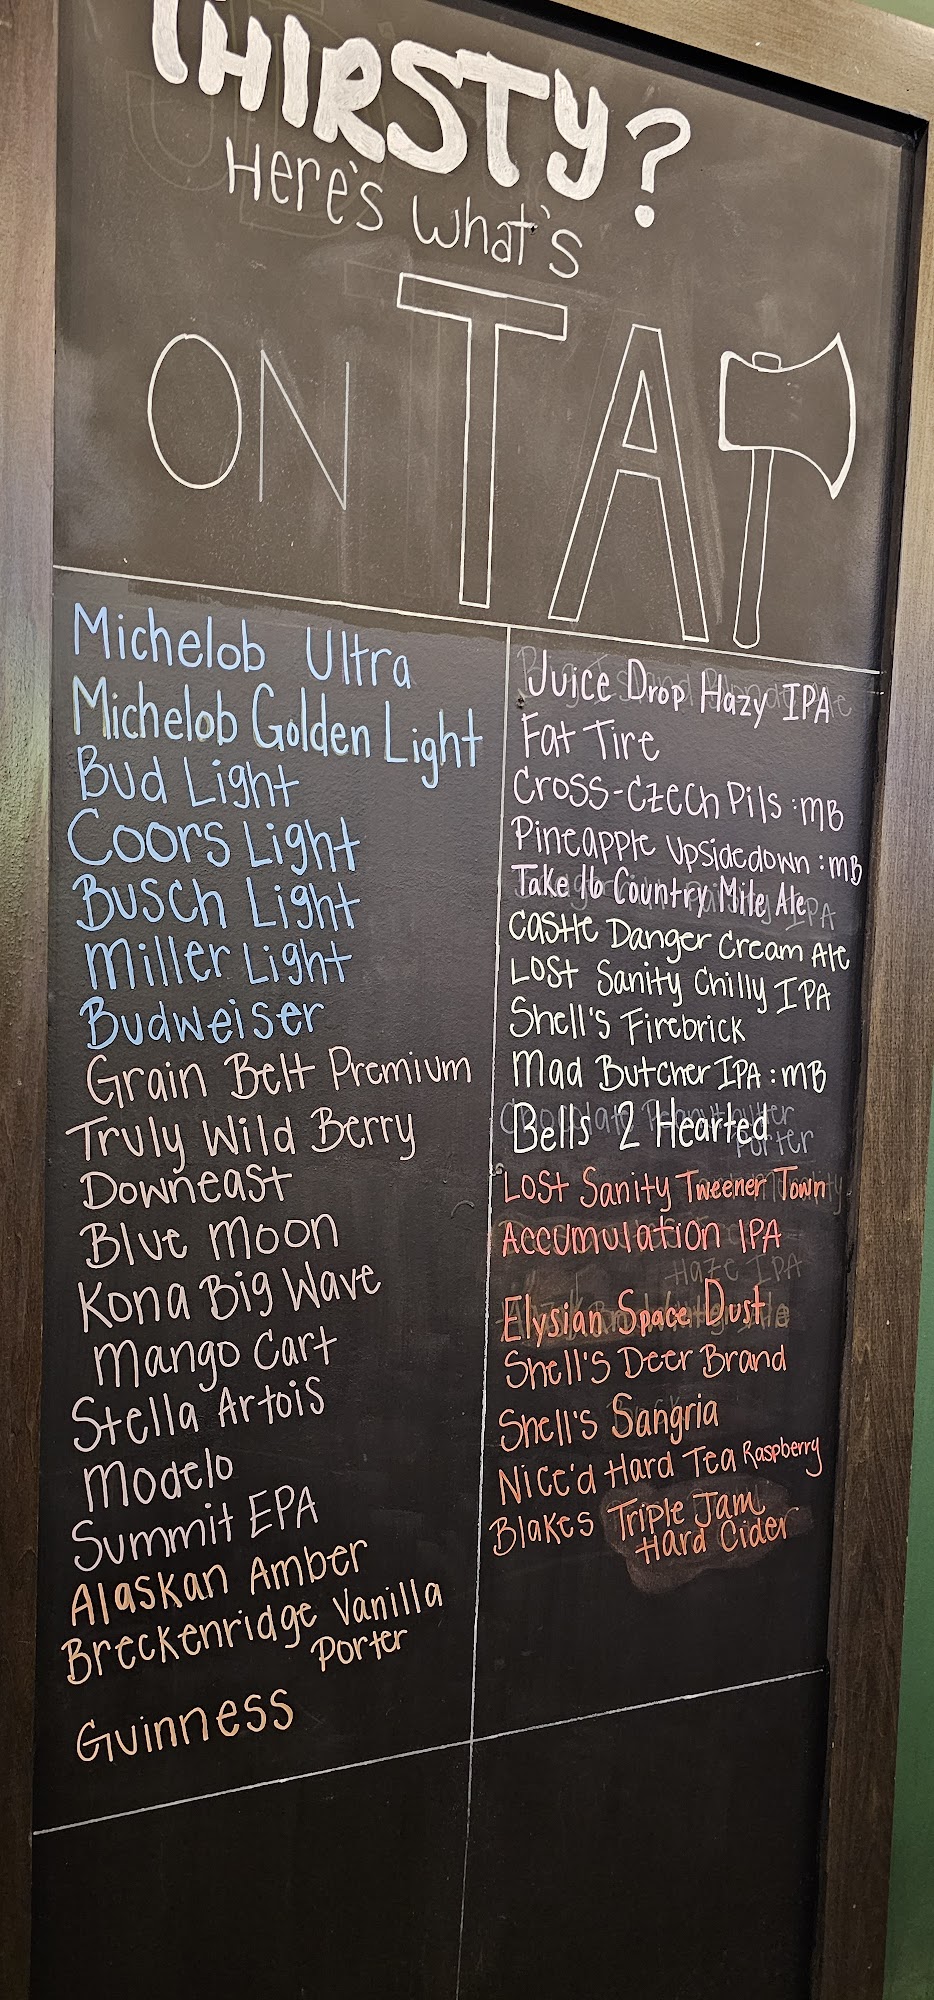 THIRSTY?
Here's what's
ON TAP
Michelob Ultra
Michelob Golden Light
Bud Light
Coors Light
Busch Light
Miller Light
Budweiser
Grain Belt Premium
Truly Wild Berry
Downeast
Blue Moon
Kona Big Wave
Mango Cart
Stella Artois
Modelo
Summit EPA
Alaskan Amber
Breckenridge Vanilla
Porter
Guinness
Juice Drop Hazy IPA
Fat Tire
Cross-Czech Pils :MB
Pineapple Upsidedown :MB
Take 16 Country Mile Ale
Castle Danger Cream Ale
Lost Sanity Chilly IPA
Shell's Firebrick
Mad Butcher IPA :MB
Bells 2 Hearted
Lost Sanity Tweener Town
Accumulation IPA
Elysian Space Dust
Shell's Deer Brand
Shell's Sangria
Nice'd Hard Tea Raspberry
Blakes Triple Jam
Hard Cider